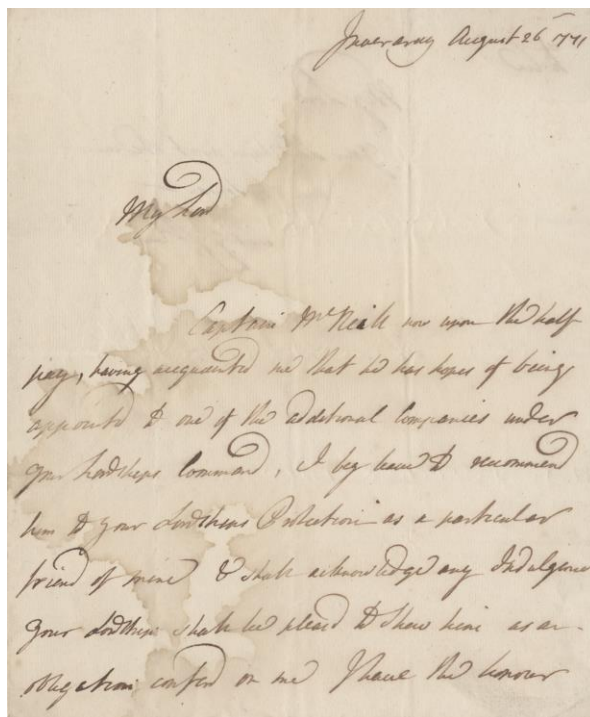 Inveraray August 26 1771
My Lord
Captain McNeill now upon the half
pay, having acquainted me that he has hopes of being
appointed to one of the additional Companies under
your Lordships Command, I beg leave to recommend
him to your Lordships Protection as a particular
friend of mine & shall acknowledge any Indulgence
your Lordship shall be pleasd to shew him as an
obligation conferd on me I have the honour